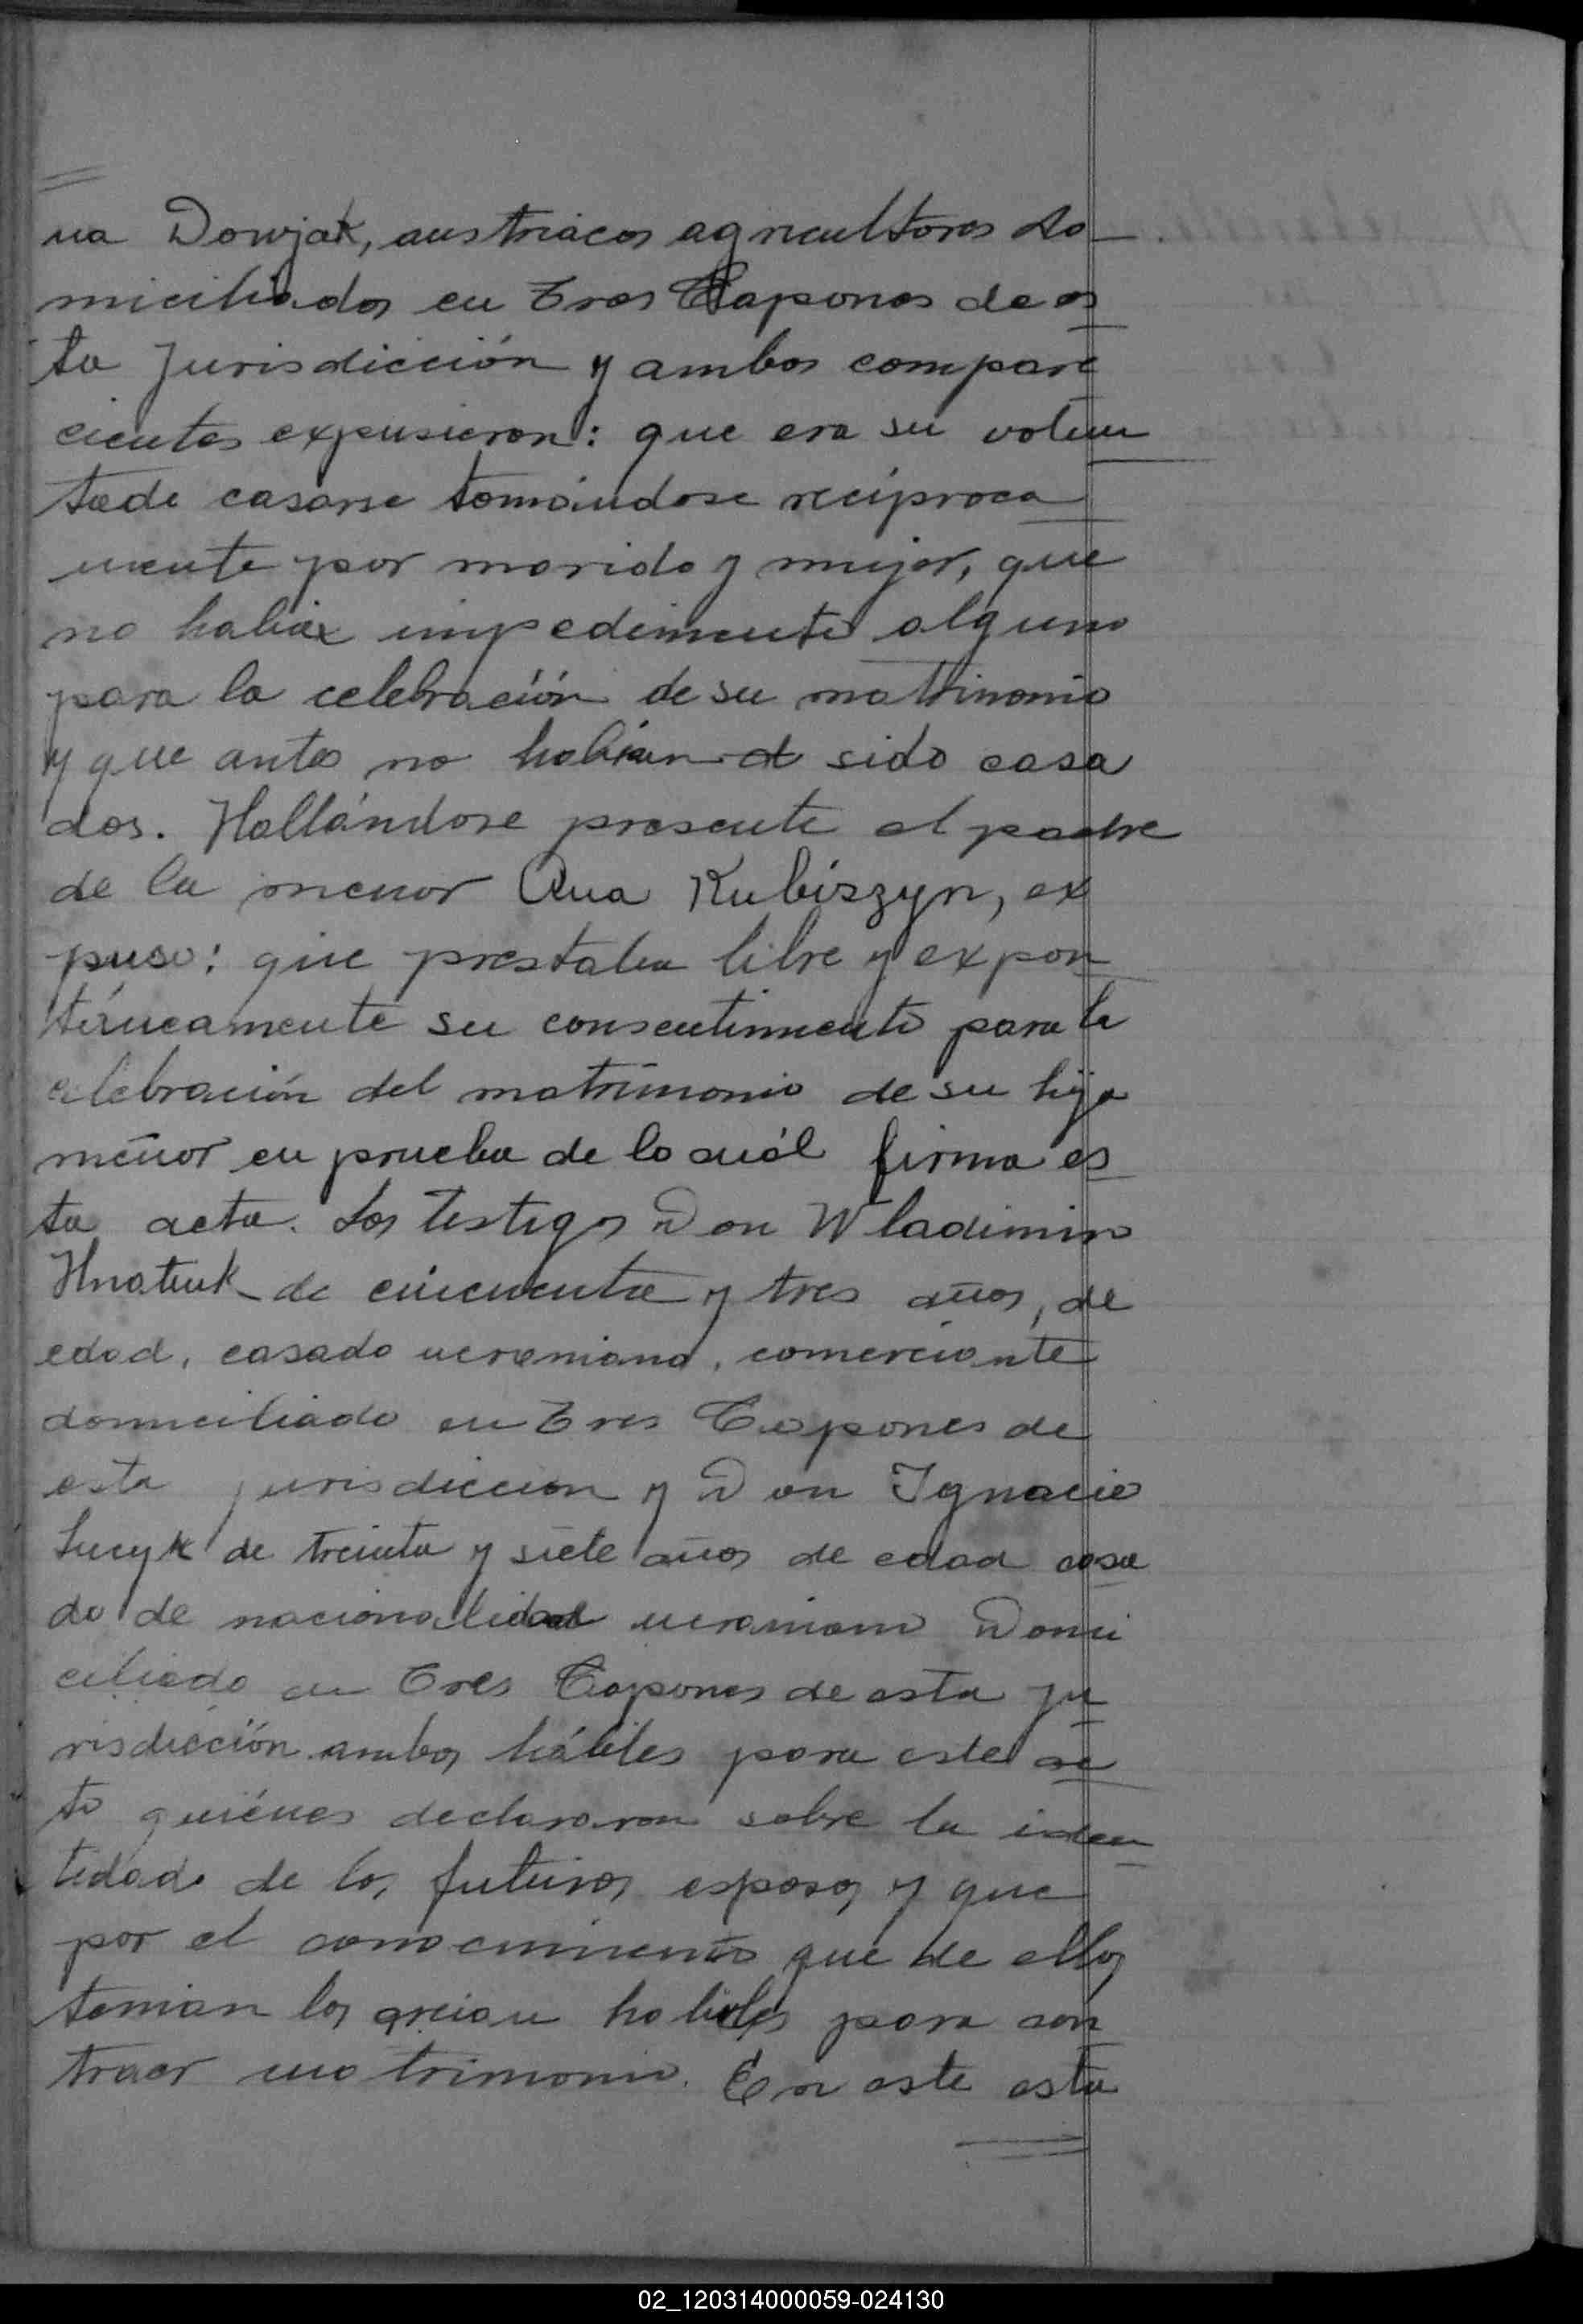 na Dowjak, austriacos agricultores do
miciliados en Tres Capones de es
ta Jurisdicción y ambos compare
cientes expusieron: que era su volun
tade casarse tomándose reciproca
mente por marido y mujer, que
no habia impedimento alguno
para la celebración de su matrimonio
y que antes no habian sido casa
dos. Hallándose presente el padre
de la menor Ana Kubiszyn, ex
puso: que prestaba libre y expon
táneamente su consentimiento para la
celebración del matrimonio de su hija
menor en prueba de lo cuál firma es
ta acta. Los Testigos Don Wladimiro
Hnatiuk de cincuenta y tres años, de
edad, casado ucraniano, comerciante
domiciliado en Tres Capones de
esta jurisdiccion y Don Ignacio
Lucyk de treinta y siete años de edad casa
do de nacionalidad ucraniano Domi
ciliado en Tres Capones de esta ju
risdicción ambos hábiles para este ac
to quiénes declararon sobre la iden
tidad de los futuros esposos y que
por el conocimiento que de ellos
tenian los creian habiles para con
traer matrimonio. En este esta
02_120314000059-024130